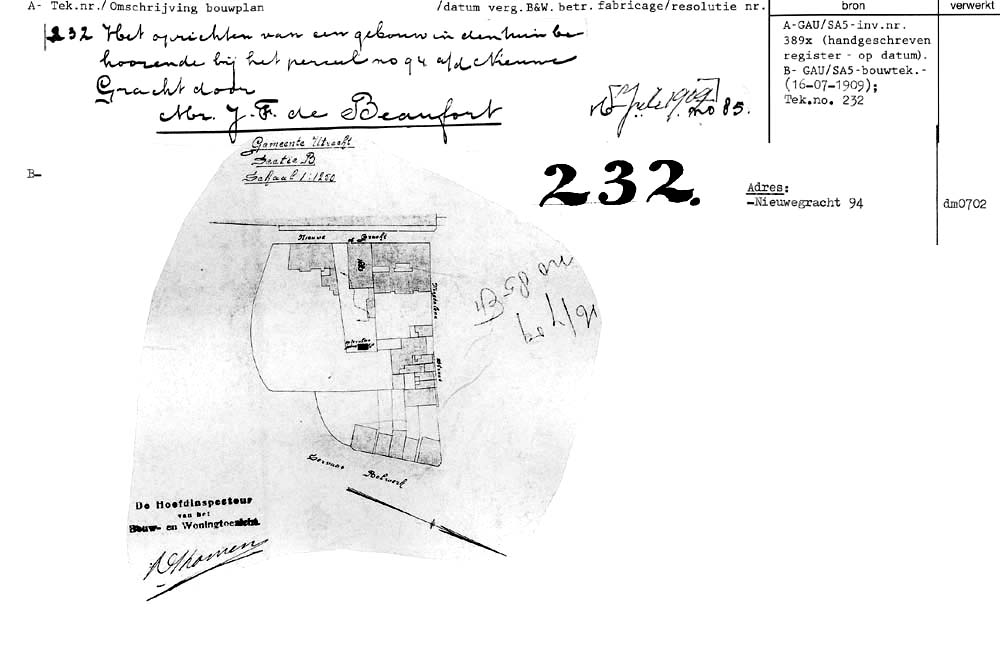 A- Tek.nr./ Omschrijving bouwplan /datum verg.B&W. betr. fabricage/resolutie nr. bron verwerkt
232 Het oprichten van een gebouw in den tuin be
hoorende bij het perceel no 94 a/d Nieuwe
Gracht door
Mr. J. F. de Beaufort
16 Juli 1909 no 85.
A-GAU/SA5-inv.nr.
389x (handgeschreven
register - op datum).
B- GAU/SA5-bouwtek.-
(16-07-1909);
Tek.no. 232
B-
Gemeente Utrecht
Sectie B
Schaal 1:1250
232.
Adres:
-Nieuwegracht 94
dm0702
Nieuwe Gracht
no 85
16/7 09
Servaas Bolwerk
De Hoofdinspecteur
van het
Bouw- en Woningtoezicht.